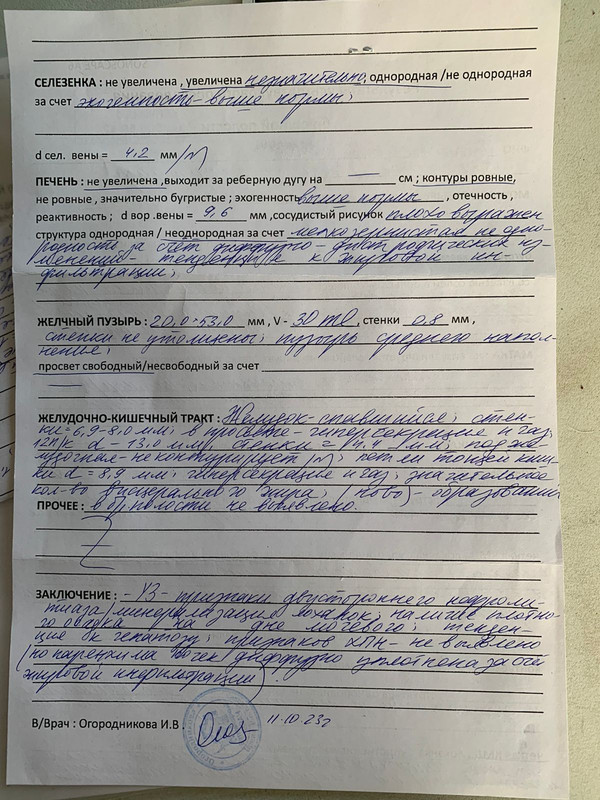 СЕЛЕЗЕНКА : не увеличена , увеличена незначительно, однородная /не однородная
за счет эхогенность - выше нормы,
d сел. вены = 4,2 мм /N
ПЕЧЕНЬ : не увеличена ,выходит за реберную дугу на — см ; контуры ровные,
не ровные , значительно бугристые ; эхогенность выше нормы , отечность ,
реактивность ; d вор .вены = 9,6 мм ,сосудистый рисунок плохо выражен
структура однородная / неоднородная за счет мелкозернистая неодно-
родность за счет диффузно - дистрофических из-
менений - тенденция к жировой ин-
фильтрации;
ЖЕЛЧНЫЙ ПУЗЫРЬ : 20,0 53,0 мм , V - 30 ml, стенки 0,8 мм ,
стенки не утолщены; пузырь среднего напол-
нения;
просвет свободный/несвободный за счет
—
ЖЕЛУДОЧНО-КИШЕЧНЫЙ ТРАКТ : Желудок - спавшийся; стен-
ки = 6,9-8,0 мм; в просвете - гиперсекреция и газ;
12п/к d - 13,0 мм, стенки = мм; подже-
лудочная - не контурирует /N/; петли тощей киш-
ки d = 8,9 мм; гиперсекреция и газ; значительное
кол-во висцерального жира; (ново) - образований
ПРОЧЕЕ : в бр. полости не выявлено.
ЗАКЛЮЧЕНИЕ : - УЗ - признаки двустороннего нефроли-
тиаза/минерализации лоханок; наличие плотно-
го осадка на дне мочевого; тенден-
ция к гепатозу; признаков ХПН - не выявлено
(но паренхима почек диффузно уплотнена за счёт
жировой инфильтрации).
В/Врач : Огородникова И.В 11.10.23г